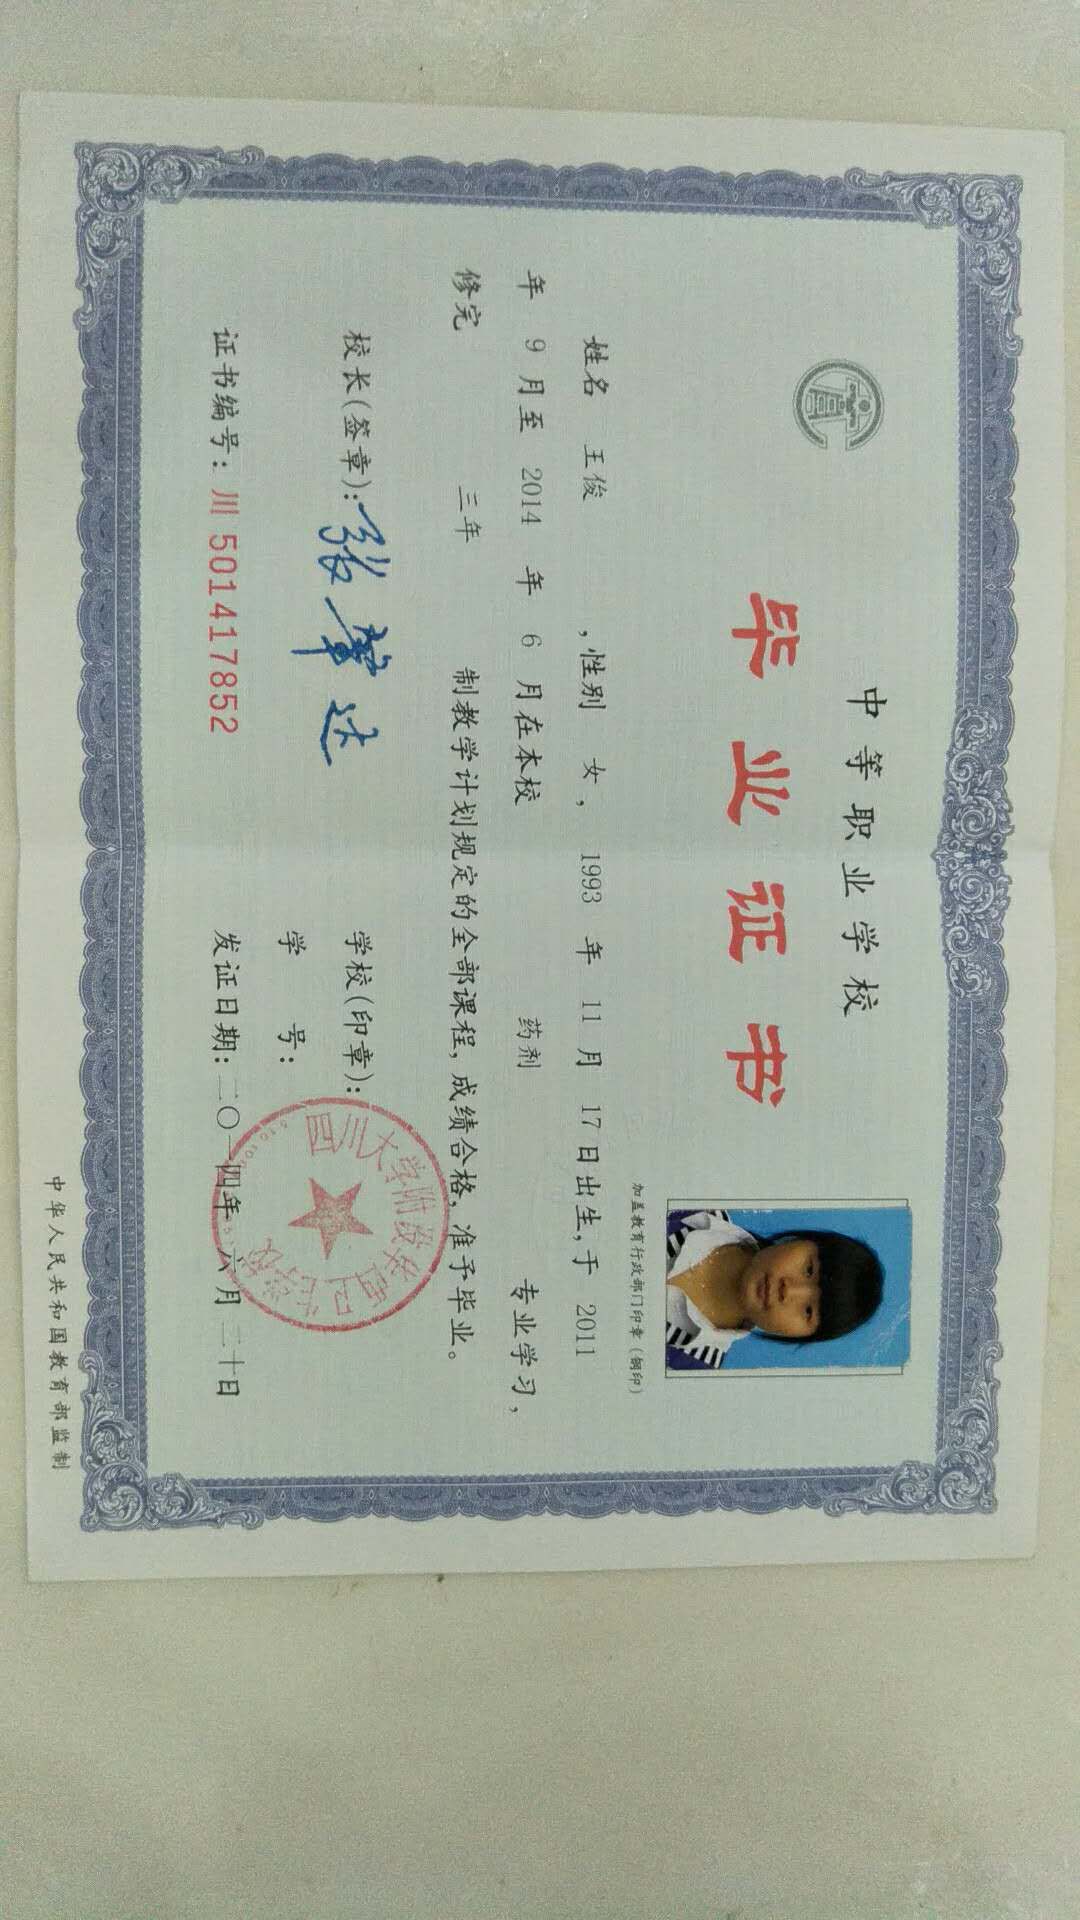 中等职业学校
毕业证书
加盖教育行政部门印章(钢印)
姓名 王俊 ,性别 女, 1993 年 11 月 17日出生,于 2011
年 9 月至 2014 年 6 月在本校 药剂 专业学习,
修完 三年 制教学计划规定的全部课程,成绩合格,准予毕业。
校长(签章): 学校(印章):
四川大学附设华西卫生学校
学 号:
证书编号: 川 501417852 发证日期: 二〇一四年 六月 二十日
中华人民共和国教育部监制